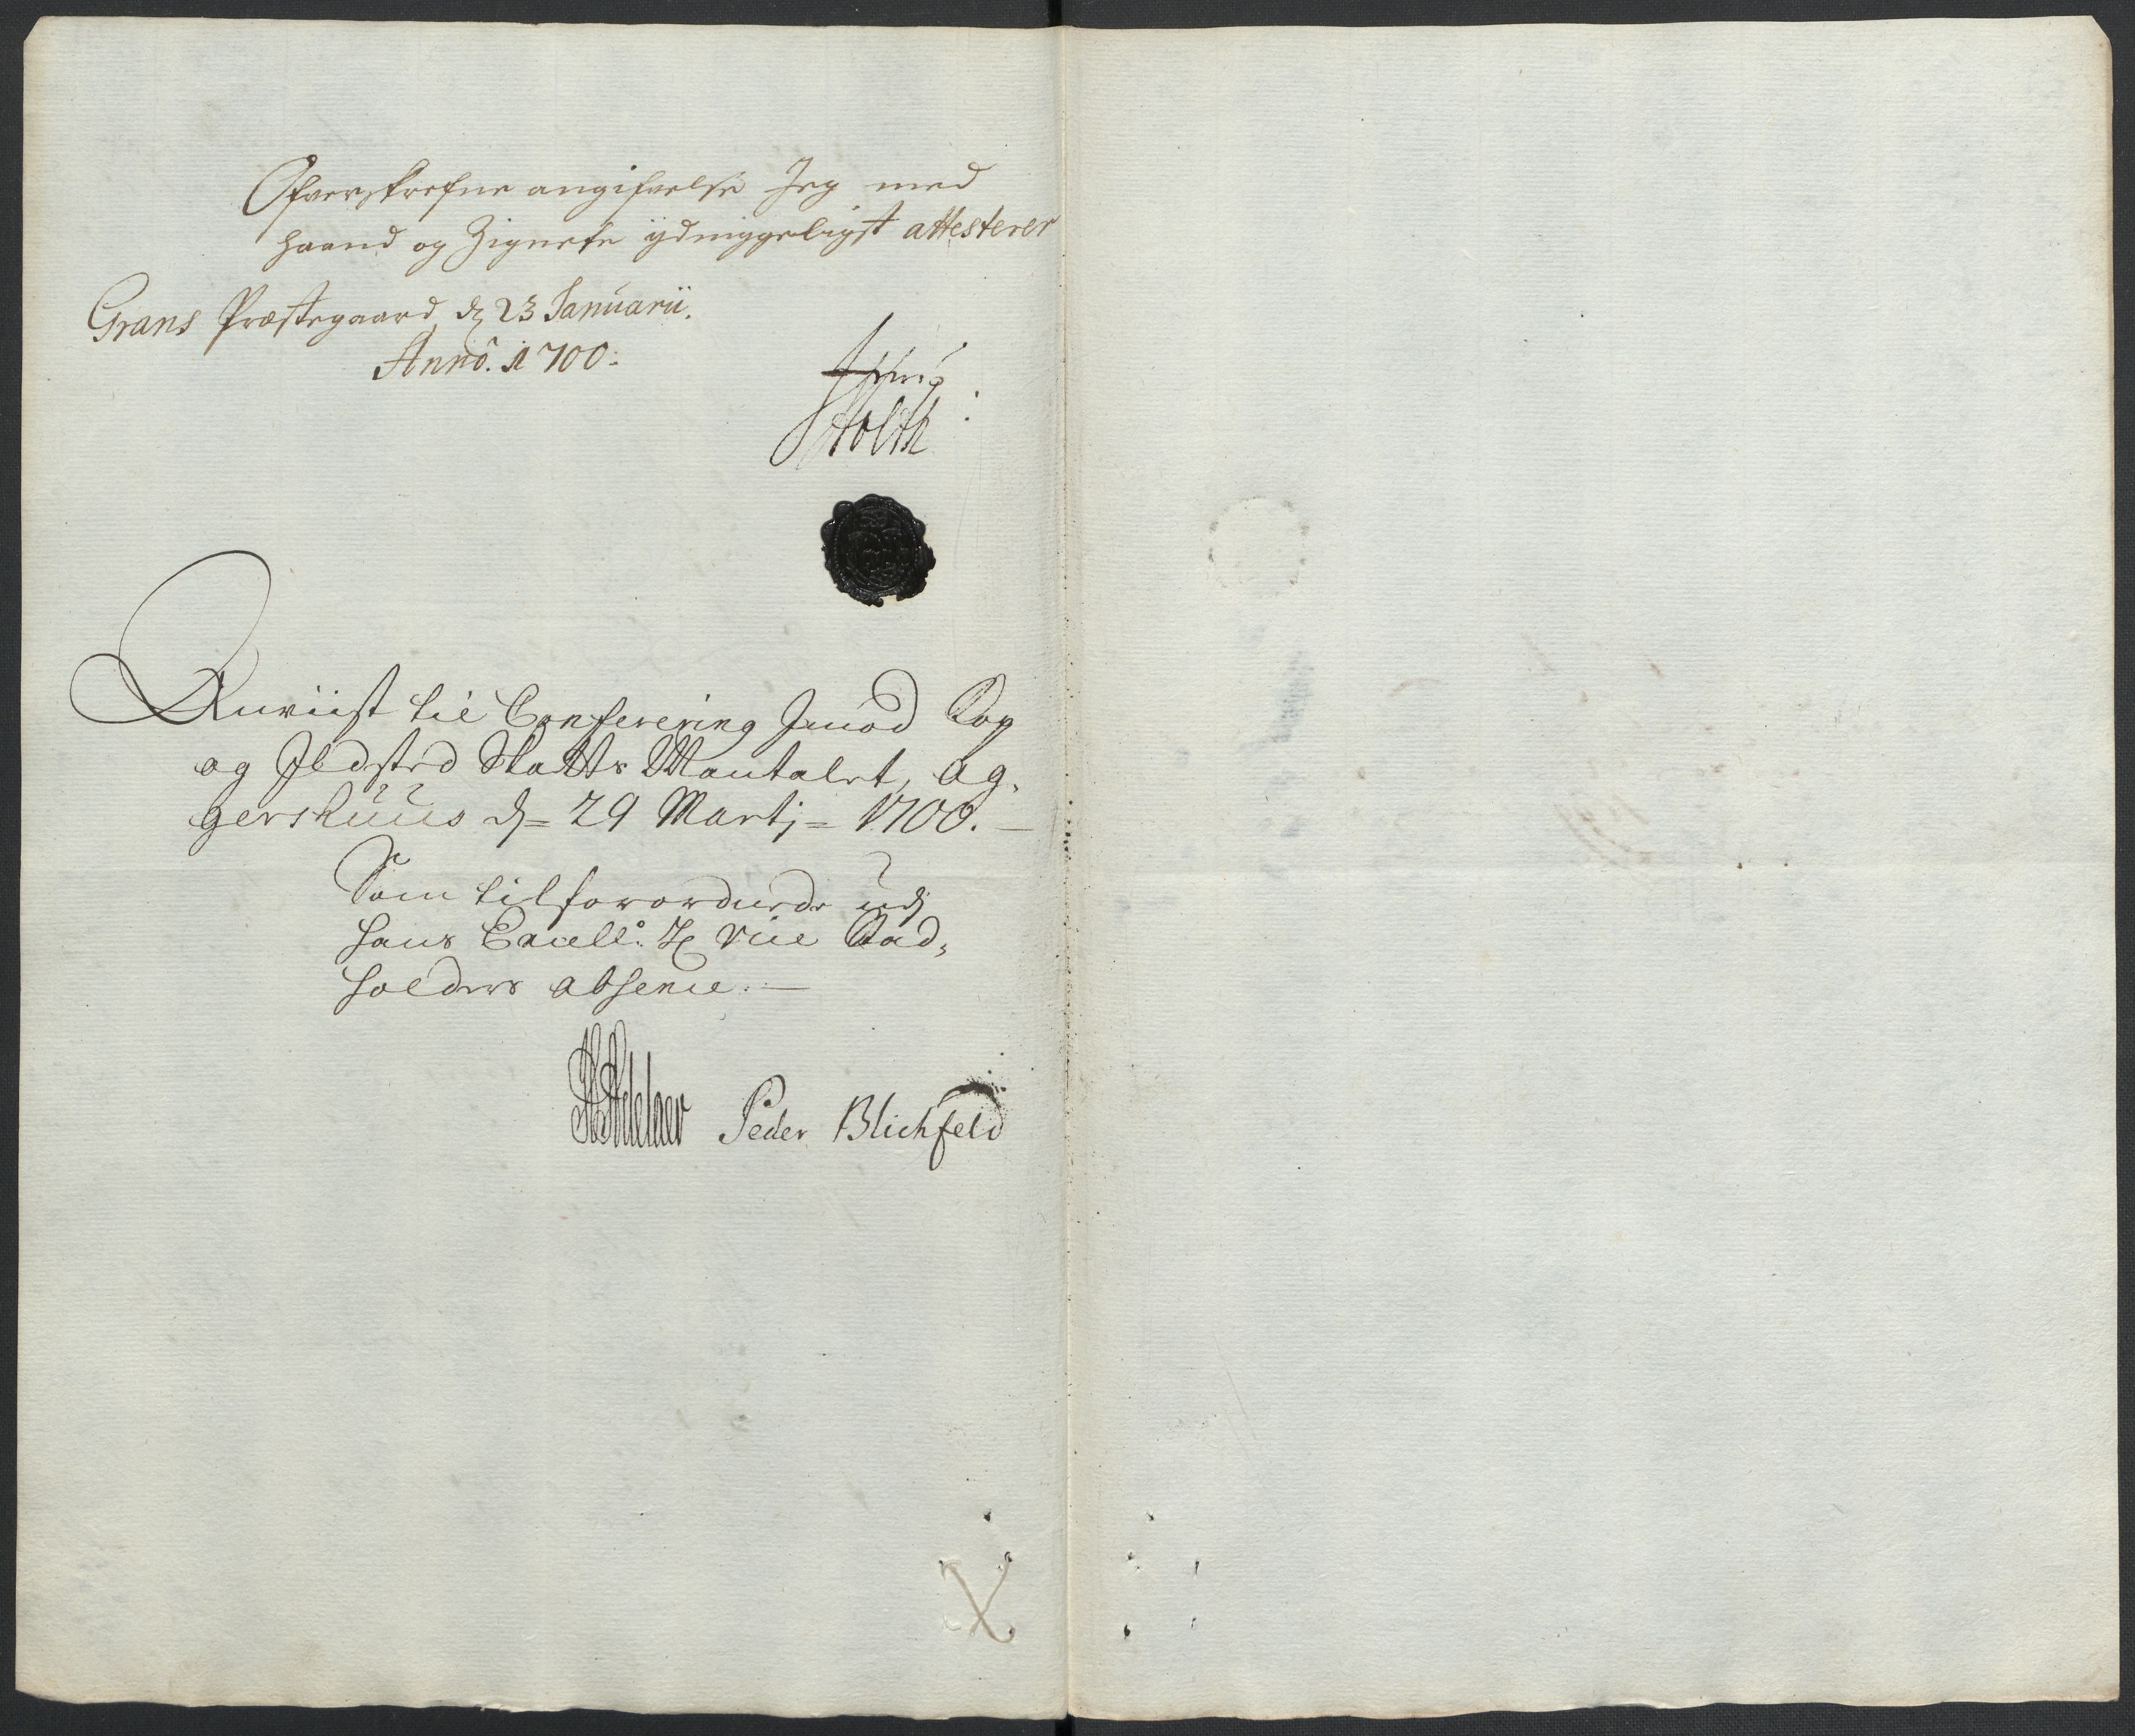 Ofverskrefne angifvelse Jeg med
haand og Zignete ydmyggeligst attesterer
Grans Præstegaard d. 23 Januarii.
Anno. 1700.
Holth
Anviist til Conferering Imod Kop
og Ildsted Skatts Mantalet, Ag-
gershuus d= 29 Martj= 1700.
Som tilforordnede udj
hans Excell: H Vice Stad-
holders absence.
Peder Blichfeld